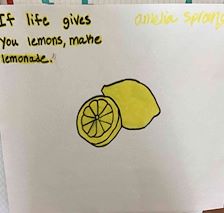 If life gives
you lemons, make
lemonade.
amelia